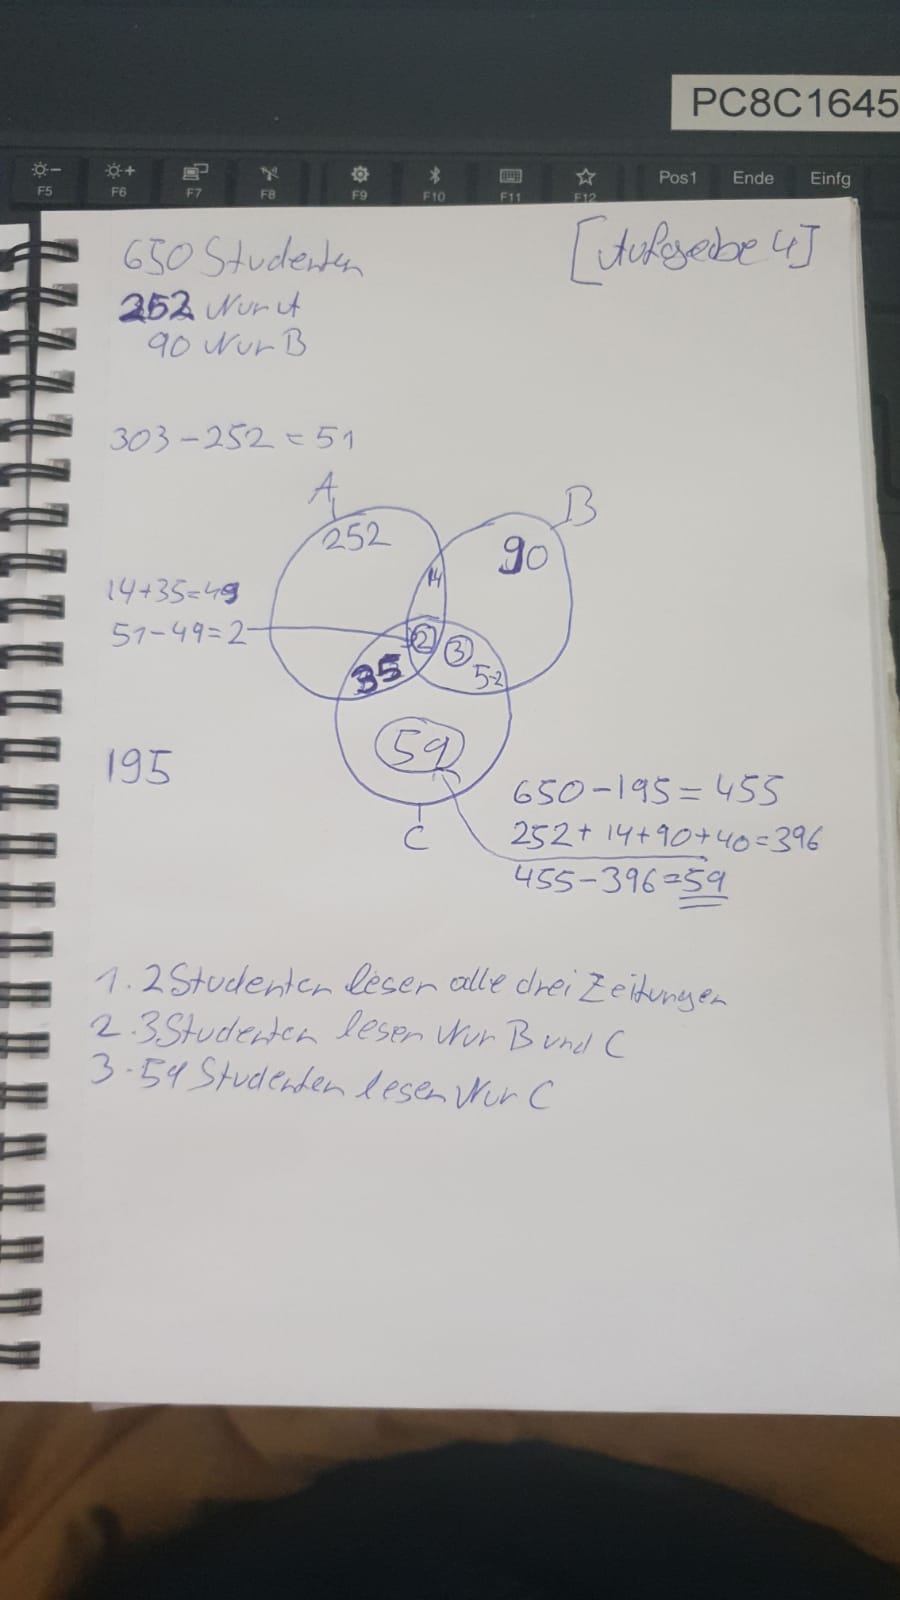 PC8C1645
F5 F6 F7 F8 F9 F10 F11 F12 Pos1 Ende Einfg
650 Studenten [Aufgabe 4]
252 Nur A
90 Nur B
303 - 252 = 51
A B
252 90
14
14+35=49
51-49=2
2 3
35 5-2
59
195
C
650-195=455
252+14+90+40=396
455-396=59
1. 2 Studenten lesen alle drei Zeitungen
2. 3 Studenten lesen Nur B und C
3. 59 Studenten lesen Nur C